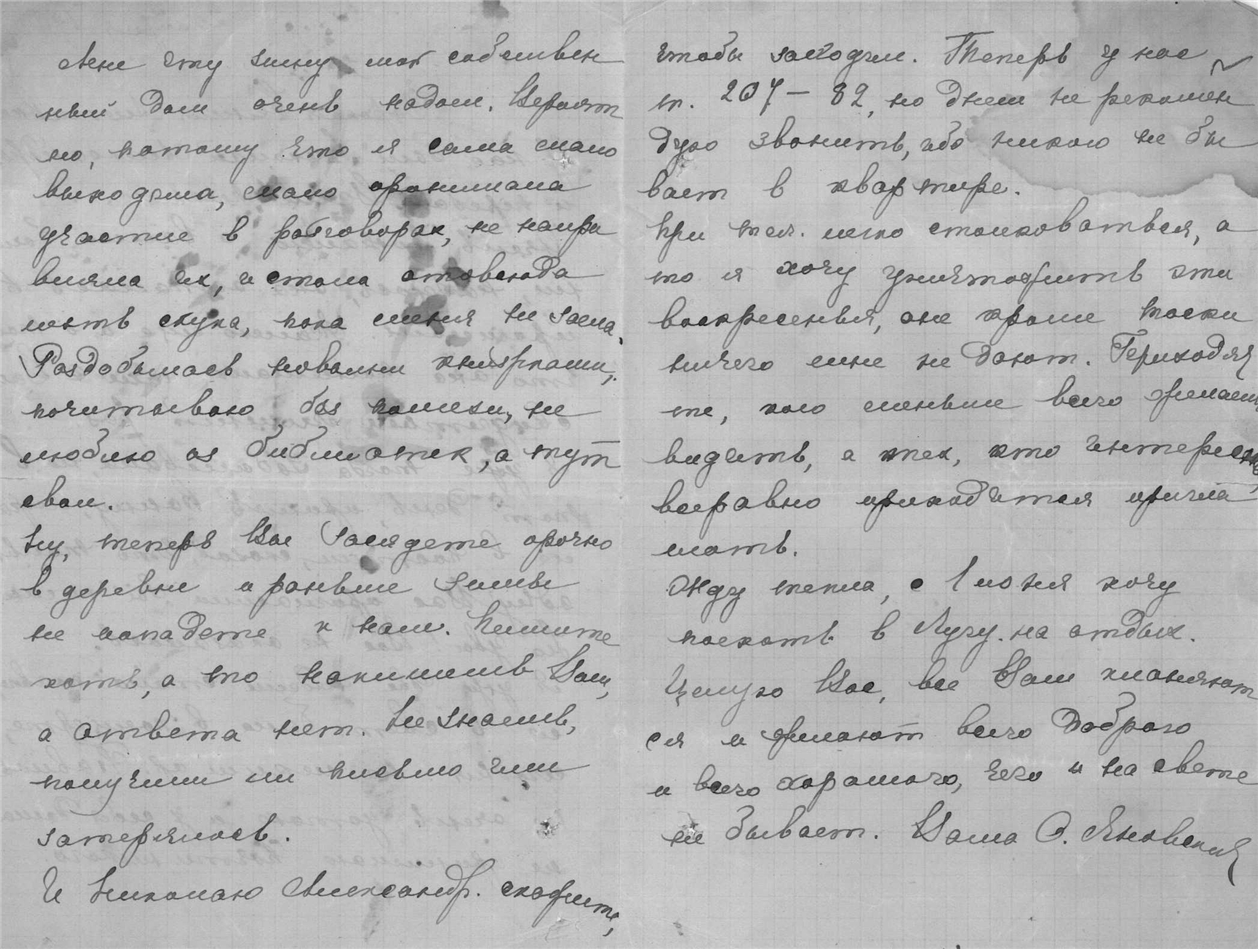 Мне эту зиму мой собствен
ный дом очень надоел. Вероят
но, потому что я сама мало
выходила, мало принимала
участие в разговорах, не напра
вляла их, и стала отовсюда
лезть скука, пока меня не заела.
Раздобылась новыми книжками,
почитываю без помехи, не
люблю из библиотек, а тут
свои.
Ну, теперь Вы засядете прочно
в деревне и раньше зимы
не попадете к нам. Пишите
хоть, а то напишешь Вам,
а ответа нет. Не знаешь,
получили ли письмо или
затерялось.
И Николаю Александр. скажите,
чтобы заходил. Теперь у нас
т. 207-82, но днем не рекомен
дую звонить, ибо никого не бы
вает в квартире.
При тел. легко столковаться, а
то я хочу уничтожить эти
воскресенья, они кроме тоски
ничего мне не дают. Приходят
те, кого меньше всего желаешь
видеть, а тех, кто интересен,
всеравно приходится пригла
шать.
Жду тепла, с 1 июня хочу
поехать в Лугу на отдых.
Целую Вас, все Вам кланяют
ся и желают всего доброго
и всего хорошего, чего и на свете
не бывает. Ваша О. Яновская